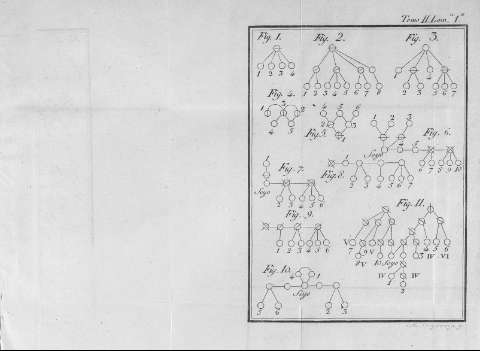 Tomo II. Lam.ª 1.ª
Fig. 1.
Fig. 2.
Fig. 3.
1 2 3 4
1 2 3 4 5 6 7
1 2 3 4 5 6 7
Fig. 4.
1 3 2
4 5
Fig. 5.
4 5 6
2 3
1
1 2 3
4 5
Fig. 6.
Sogo
6 7 8 9 10
Fig. 7.
1
Sogo
2 3 4 5 6
Fig. 8.
1
2 3 4 5 6 7
Fig. 9.
1 2 3 4 5 6
Fig. 10.
4 1
Sogo
5 6 2 3
Fig. 11.
V V Sogo IV VI
7 9 10 3 4 5 6
8 V
IV IV
1
2